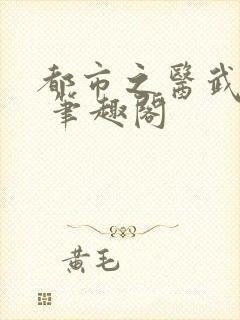 都市之醫武
筆趣閣
黃毛